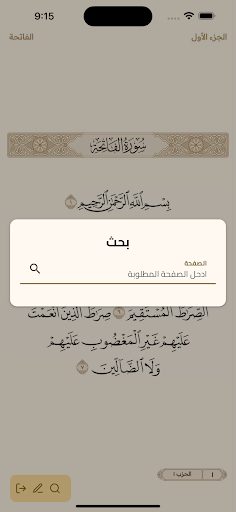 9:15
الجزء الأول
الفاتحة
سُورَةُ الفَاتِحَة
بِسْمِ اللَّهِ الرَّحْمَٰنِ الرَّحِيمِ ١
بحث
الصفحة
ادجل الصفحة المطلوبة
الصِّرَاطَ الْمُسْتَقِيمَ ٦ صِرَاطَ الَّذِينَ أَنْعَمْتَ
عَلَيْهِمْ غَيْرِ الْمَغْضُوبِ عَلَيْهِمْ
وَلَا الضَّالِّينَ ٧
١
الحزب ١